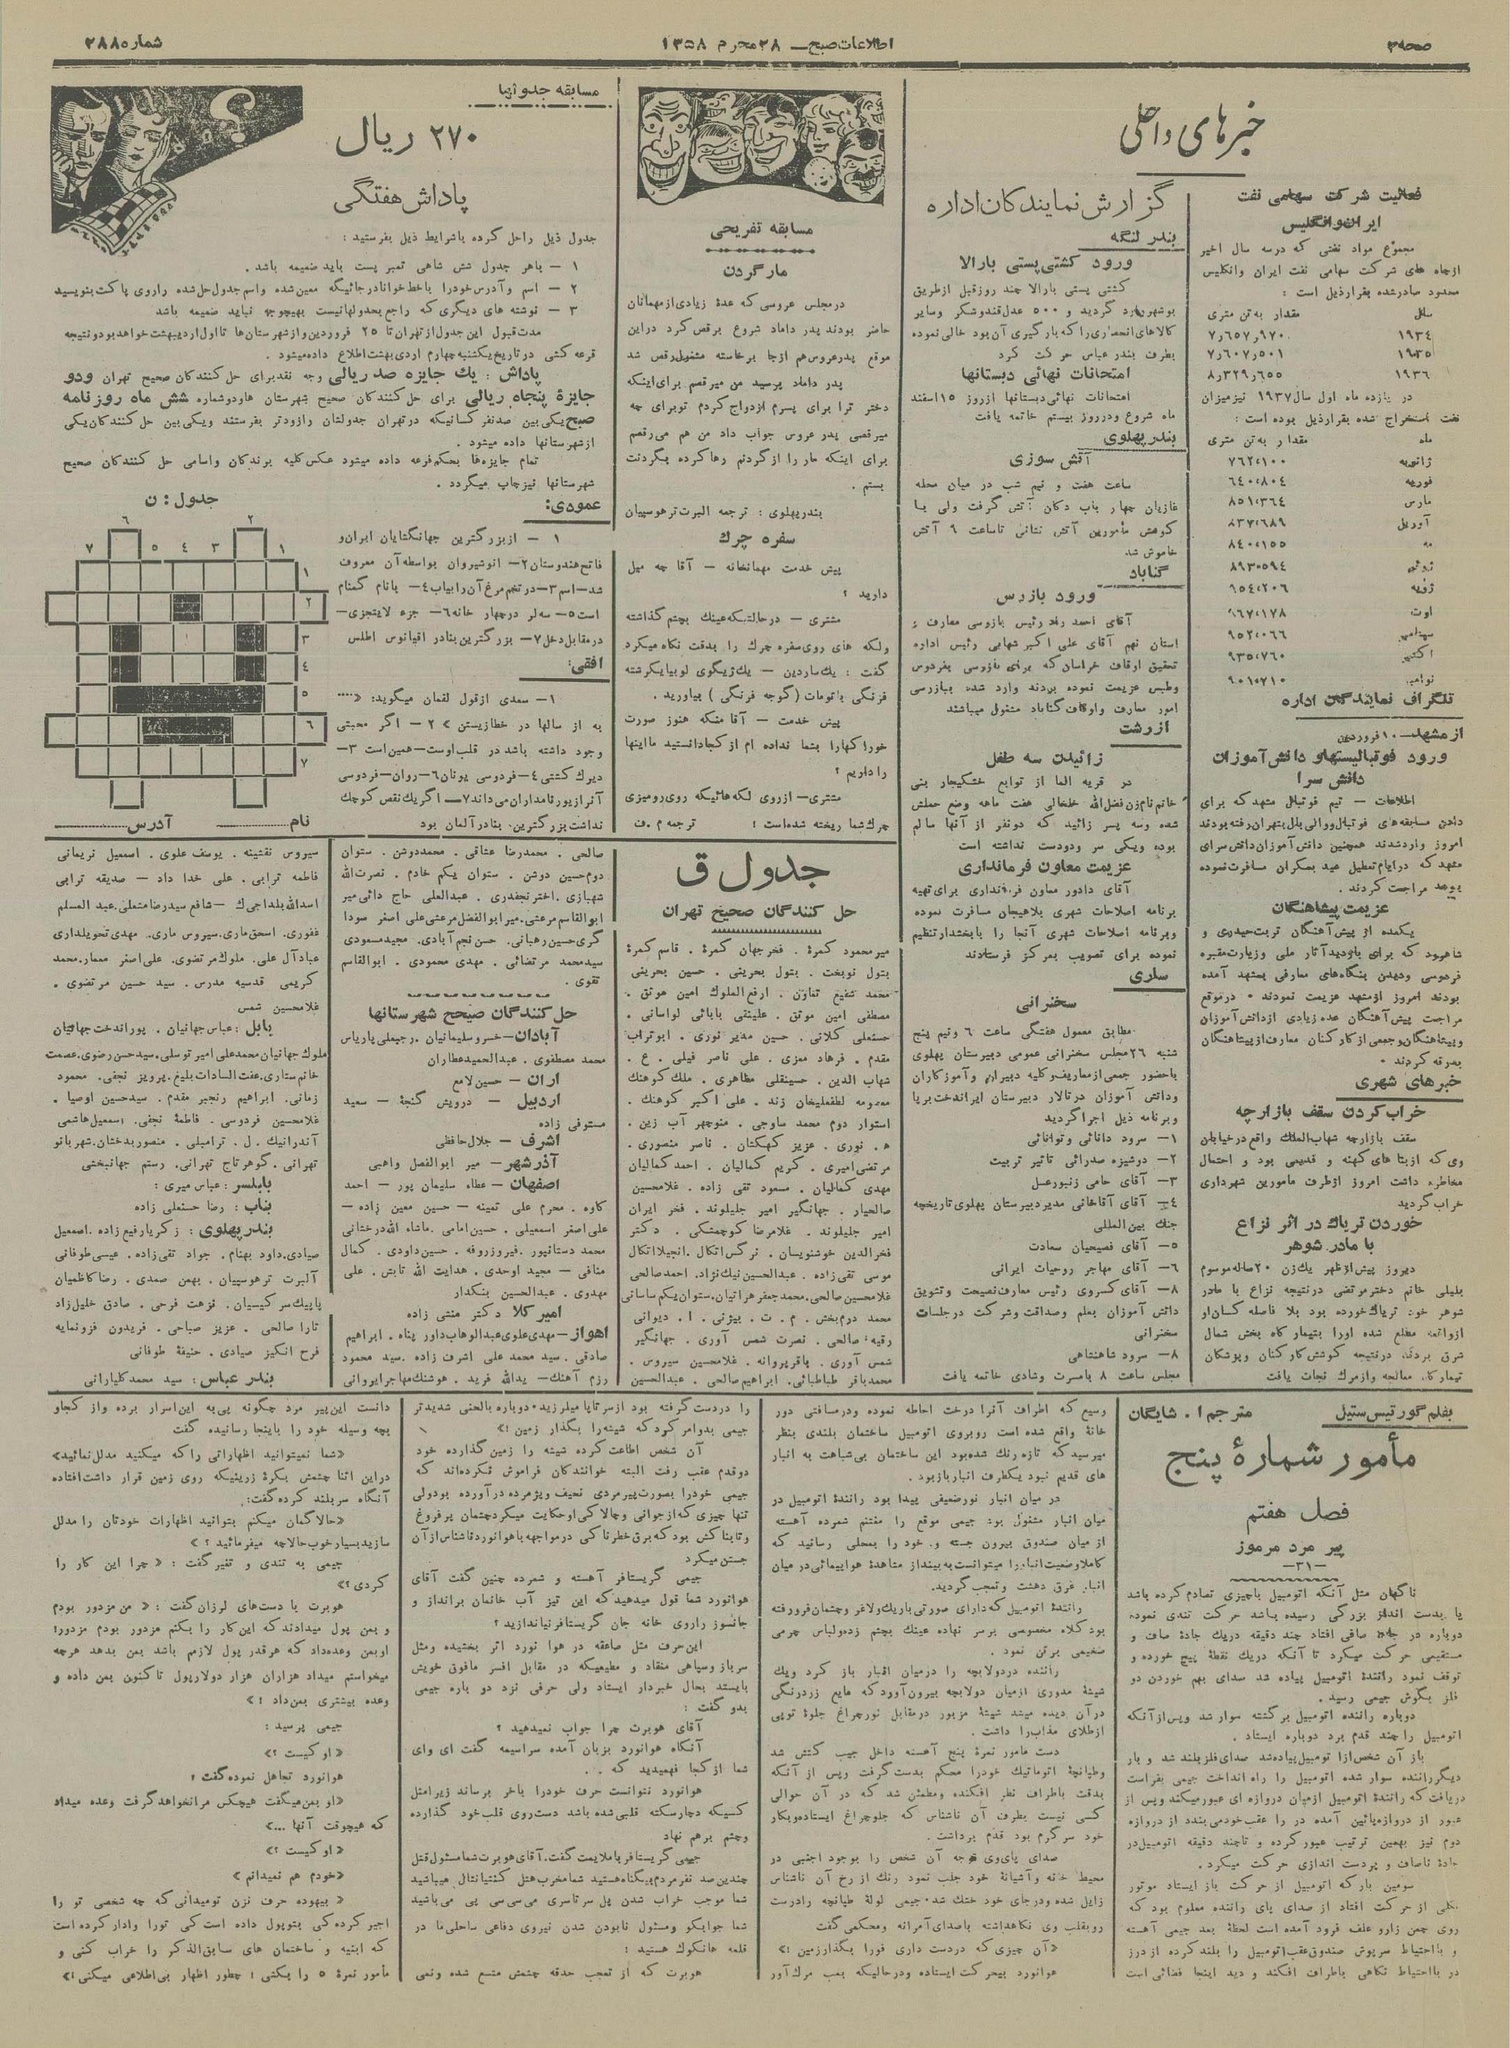 صفحه ۳
اطلاعات صبح — ۲۸ محرم ۱۳۵۸
شماره ۲۸۸۰
خبرهای داخلی
فعالیت شرکت سهامی نفت
ایران و انگلیس
مجموع مواد نفتی که در سه سال اخیر
از چاه های شرکت سهامی نفت ایران و انگلیس
محدود صادر شده بقرار ذیل است :
سال مقدار به تن متری
۱۹۳۴ ۷٫۶۵۷٫۹۷۰
۱۹۳۵ ۷٫۶۰۷٫۵۰۱
۱۹۳۶ ۸٫۳۲۹٫۶۵۵
در یازده ماه اول سال ۱۹۳۷ نیز میزان
نفت استخراج شده بقرار ذیل بوده است :
ماه مقدار به تن متری
ژانویه ۷۶۲٬۱۰۰
فوریه ۶۴۰٬۸۰۴
مارس ۸۵۱٬۳۶۴
آوریل ۸۳۷٬۶۸۹
مه ۸۴۰٬۱۵۵
ژوئن ۸۹۳٬۵۹۴
ژویه ۹۵۴٬۲۰۶
اوت
سپتامبر ۹۵۲٬۰۶۶
اکتبر ۹۳۵٬۷۶۰
نوامبر ۹۰۱٬۲۱۰
تلگراف نمایندگان اداره
از مشهد — ۱۰ فروردین
ورود فوتبالیستها و دانش آموزان
دانش سرا
اطلاعات — تیم فوتبال مشهد که برای
دادن مسابقه های فوتبال و والی بال بتهران رفته بودند
امروز وارد شدند همچنین دانش آموزان دانش سرای
مشهد که در ایام تعطیل عید بمکران مسافرت نموده
بودند مراجعت کردند .
عزیمت پیشاهنگان
یکعده از پیش آهنگان تربت حیدری و
شاهرود که برای بازدید آثار ملی و زیارت مقبره
فردوسی و دیدن بنگاه های معارفی بمشهد آمده
بودند امروز از مشهد عزیمت نمودند . در موقع
مراجعت پیش آهنگان عده زیادی از دانش آموزان
و پیشاهنگان و جمعی از کارکنان معارف از پیشاهنگان
بدرقه کردند .
خبرهای شهری
خراب کردن سقف بازارچه
سقف بازارچه شهاب الملک واقع در خیابان
ری که از بناهای کهنه و قدیمی بود و احتمال
مخاطره داشت امروز از طرف مأمورین شهرداری
خراب گردید
خوردن تریاک در اثر نزاع
با مادر شوهر
دیروز پیش از ظهر یک زن ۲۰ ساله موسوم
بلیلی خانم دختر مرتضی در نتیجه نزاع با مادر
شوهر خود تریاک خورده بود بلا فاصله کسان او
از واقعه مطلع شده او را بتیمارگاه بخش شمال
شرق بردند در نتیجه کوشش کارکنان و پزشکان
تیمارگاه معالجه و از مرگ نجات یافت
گزارش نمایندگان اداره
بندر لنگه
ورود کشتی پستی بارالا
کشتی پستی بارالا چند روز قبل از طریق
بوشهر وارد گردید و ۵۰۰ عدل قند و شکر و سایر
کالاهای انحصاری را که بارگیری آن بود خالی نموده
بطرف بندر عباس حرکت کرد
امتحانات نهائی دبستانها
امتحانات نهائی دبستانها از روز ۱۵ اسفند
ماه شروع و در روز بیستم خاتمه یافت
بندر پهلوی
آتش سوزی
ساعت هفت و نیم شب در میان محله
غازیان چهار باب دکان آتش گرفت ولی با
کوشش مأمورین آتش نشانی تا ساعت ۹ آتش
خاموش شد
گناباد
ورود بازرس
آقای احمد راد رئیس بازرسی معارف و
استان نهم آقای علی اکبر شهابی رئیس اداره
تحقیق اوقاف خراسان که برای بازرسی بفردوس
و طبس عزیمت نموده بودند وارد شده ببازرسی
امور معارف و اوقاف گناباد مشغول میباشند
از رشت
زائیدن سه طفل
در قریه الما از توابع خشکبجار بنی
خانم نام زن فضل الله خلخالی هفت ماهه وضع حملش
شده و سه پسر زائید که دو نفر از آنها سالم
بوده و یکی سر و دو دست نداشته است
عزیمت معاون فرمانداری
آقای دادور معاون فرمانداری برای تهیه
برنامه اصلاحات شهری بلاهیجان مسافرت نموده
و برنامه اصلاحات شهری آنجا را با بخشدار تنظیم
نموده برای تصویب بمرکز فرستادند
ساری
سخنرانی
مطابق معمول هفتگی ساعت ۶ و نیم پنج
شنبه ۲۶ مجلس سخنرانی عمومی دبیرستان پهلوی
با حضور جمعی از معاریف و کلیه دبیران و آموزگاران
و دانش آموزان در تالار دبیرستان ایراندخت برپا
و برنامه ذیل اجرا گردید
۱— سرود دانائی و توانائی
۲— دوشیزه صدرائی تاثیر تربیت
۳— آقای حامی زنبور عسل
۴— آقای آقاخانی مدیر دبیرستان پهلوی تاریخچه
جنگ بین المللی
۵— آقای فصیحیان سعادت
۶— آقای مهاجر روحیات ایرانی
۸— آقای کسروی رئیس معارف نصیحت و تشویق
دانش آموزان بعلم و صداقت و شرکت در جلسات
سخنرانی
۸— سرود شاهنشاهی
مجلس ساعت ۸ با مسرت و شادی خاتمه یافت
مسابقه تفریحی
مار گردن
در مجلس عروسی که عدهٔ زیادی از مهمانان
حاضر بودند پدر داماد شروع برقص کرد در این
موقع پدر عروس هم از جا برخاسته مشغول رقص شد
پدر داماد پرسید من میرقصم برای اینکه
دختر ترا برای پسرم ازدواج کردم تو برای چه
میرقصی پدر عروس جواب داد من هم میرقصم
برای اینکه مار را از گردنم رها کرده بگردنت
بستم .
بندر پهلوی : ترجمه البرت ترهوسپیان
سفره چرک
پیش خدمت مهمانخانه — آقا چه میل
دارید ؟
مشتری — در حالتیکه عینک بچشم گذاشته
و لکه های روی سفره چرک را بدقت نگاه میکرد
گفت : یک ساردین — یک ژیگوی لوبیا یکرشته
فرنگی با تومات (گوجه فرنگی ) بیاورید .
پیش خدمت — آقا منکه هنوز صورت
خوراکها را بشما نداده ام از کجا دانستید ما اینها
را داریم ؟
مشتری — از روی لکه هائیکه روی رومیزی
چرک شما ریخته شده است ! ترجمه م . ف
مسابقه جدولها
۲۷۰ ریال
پاداش هفتگی
جدول ذیل را حل کرده با شرایط ذیل بفرستید :
۱ — با هر جدول شش شاهی تمبر پست باید ضمیمه باشد .
۲ — اسم و آدرس خود را با خط خوانا در جائیکه معین شده و اسم جدول حل شده را روی پاکت بنویسید
۳ — نوشته های دیگری که راجع بجدولها نیست بهیچوجه نباید ضمیمه باشد
مدت قبول این جدول از تهران تا ۲۵ فروردین و از شهرستان ها تا اول اردیبهشت خواهد بود و نتیجه
قرعه کشی در تاریخ یکشنبه چهارم اردی بهشت اطلاع داده میشود .
پاداش : یک جایزه صد ریالی وجه نقد برای حل کنندگان صحیح تهران و دو
جایزهٔ پنجاه ریالی برای حل کنندگان صحیح شهرستان ها و دو شماره شش ماه روزنامه
صبح یکی بین صد نفر کسانیکه در تهران جدولشان را زودتر بفرستند و یکی بین حل کنندگان یکی
از شهرستانها داده میشود .
تمام جایزه ها بحکم قرعه داده میشود عکس کلیه برندگان و اسامی حل کنندگان صحیح
شهرستانها نیز چاپ میگردد .
جدول : ن
۱ ۲ ۳ ۴ ۵ ۶ ۷
۱
۲
۳
۴
۵
۶
۷
نام آدرس
عمودی:
۱ — از بزرگترین جهانگشایان ایران و
فاتح هندوستان ۲— انوشیروان بواسطه آن معروف
شد — اسم ۳— در تخم مرغ آن را بیاب ۴— بانام گمنام
است ۵— سه لر در چهار خانه ۶— جزء لایتجزی —
در مقابل دخل ۷— بزرگترین بنادر اقیانوس اطلس
افقی:
۱— سعدی از قول لقمان میگوید: « ....
به از سالها در خطا زیستن » ۲— اگر محبتی
وجود داشته باشد در قلب اوست — همین است ۳—
دیرک کشتی ۴— فردوسی یونان ۶— روان — فردوسی
آنرا زیور نامداران می داند ۷— اگر یک نقص کوچک
نداشت بزرگترین بنادر آلمان بود
جدول ق
حل کنندگان صحیح تهران
میر محمود کمرهٔ . فخر جهان کمرهٔ . قاسم کمرهٔ
بتول نوبخت . بتول بحرینی . حسین بحرینی
محمد شفیع تفاون . ارفع الملوک امین موثق .
مصطفی امین موثق . علینقی بابائی لواسانی .
حسنعلی کلانی . حسین مدیر نوری . ابوتراب
مقدم . فرهاد معزی . علی ناصر فیلی . ع .
شهاب الدین . حسینقلی مظاهری . ملک کوهنک
معصومه لطفعلیخان زند . علی اکبر کوهنک .
استوار دوم محمد ساوجی . منوچهر آب زین .
ه . نوری . عزیز کهکتان . ناصر منصوری .
مرتضی امیری . کریم کمالیان . احمد کمالیان
مهدی کمالیان . مسعود تقی زاده . غلامحسین
صالحیار . جهانگیر امیر جلیلوند . فخر ایران
امیر جلیلوند . غلامرضا کوچمشکی . دکتر
فخرالدین خوشنویسان . نرگس اتکال . انجیلا اتکال
موسی تقی زاده . عبدالحسین نیک نژاد . احمد صالحی
غلامحسین صالحی . محمد جعفر هراتیان . ستوان یکم ساسانی
محمد درم بخش . م . ت . بیژنی . ا . دیوانی
رقیه صالحی . نصرت شمس آوری . جهانگیر
شمس آوری . باقر پروانه . غلامحسین سیروس .
محمد باقر طباطبائی . ابراهیم صالحی . عبدالحسین
صالحی . محمد رضا عتاقی . محمد دوشن . ستوان
دوم حسین دوشن . ستوان یکم خادم . نصرت الله
شهبازی . اختر نجفدری . عبدالعلی حاج دائی میر
ابوالقاسم مرعشی . میر ابوالفضل مرعشی علی اصغر سودا
گری حسین رهبانی . حسن نجم آبادی . مجید مسعودی
سید محمد مرتضائی . مهدی محمودی . ابوالقاسم
تقوی .
حل کنندگان صحیح شهرستانها
آبادان — خسرو سلیمانیان . رجبعلی پارپاس
محمد مصطفوی . عبدالحمید عطاران
اران — حسین لامع
اردبیل — درویش گنجهٔ — سعید
مستوفی زاده
اشرف — جلال حافظی
آذر شهر — میر ابوالفضل واهبی
اصفهان — عطاء سلیمان پور — احمد
کاوه . محرم علی ثمینه — حسین معین زاده —
علی اصغر اسمعیلی . حسین امامی . ماشاء الله درخشانی
محمد دستانپور . فیروز روفه . حسین داودی . کمال
منافی — مجید اوحدی . هدایت الله تابش . علی
مهدوی . عبدالحسین بنکدار
امیر کلا دکتر منشی زاده
اهواز — مهدی علوی عبدالوهاب داور پناه . ابراهیم
صادقی . سید محمد علی اشرف زاده . سید محمود
رزم آهنگ — یدالله فرید . هوشنگ مهاجر ایروانی
سیروس نقشینه . یوسف علوی . اسمعیل نریمانی
فاطمه ترابی . علی خدا داد — صدیقه ترابی
اسدالله بلداجی ک — شافع سید رضا متعلی . عبد المسلم
غفوری . اسحق ماری . سیروس ماری . مهدی تحویلداری
عباد آل علی . ملوک مرتضوی . علی اصغر معمار . محمد
کریمی قدسیه مدرس . سید حسین مرتضوی .
غلامحسین شمس
بابل : عباس جهانیان . پوراندخت جهانیان
ملوک جهانیان محمد علی امیر توسلی . سید حسن رضوی . عصمت
خانم ستاری . عفت السادات بلیغ . پرویز نجفی . محمود
زمانی . ابراهیم رنجبر مقدم . سید حسین اوصیا .
غلامحسین فردوسی . فاطمهٔ نجفی . اسمعیل هاشمی
آندرانیک . ل . ترامبلی . منصور بدخشان . شهربانو
تهرانی . گوهر تاج تهرانی . رستم جهانبخشی
بابلسر : عباس میری :
بناب : رضا حسنعلی زاده
بندر پهلوی : زکریا رفیع زاده . اسمعیل
صیادی . داود بهنام . جواد تقی زاده . عیسی طوفانی
آلبرت ترهوسپیان . بهمن صمدی . رضا کاظمیان
پاپیک سرکیسیان . نزهت فرحی . صادق خلیل زاد
تارا صالحی . عزیز صباحی . فریدون فزونمایه
فرح انگیز صیادی . حنیفهٔ طوفانی
بندر عباس : سید محمد گلپایرانی
بقلم گورتیس ستیل مترجم ا . شایگان
مأمور شمارهٔ پنج
فصل هفتم
پیر مرد مرموز
—۳۱—
ناگهان مثل آنکه اتومبیل با چیزی تصادم کرده باشد
یا بدست انداز بزرگی رسیده باشد حرکت تندی نموده
دوباره در جاده صافی افتاد چند دقیقه در یک جادهٔ صاف و
مستقیمی حرکت میکرد تا آنکه در یک نقطهٔ پیچ خورده و
توقف نمود رانندهٔ اتومبیل پیاده شد صدای بهم خوردن دو
فلز بگوش جیمی رسید .
دوباره راننده اتومبیل برگشته سوار شد و پس از آنکه
اتومبیل را چند قدم برد دوباره ایستاد .
باز آن شخص از اتومبیل پیاده شد صدای فلز بلند شد و بار
دیگر راننده سوار شده اتومبیل را راه انداخت جیمی بفراست
دریافت که رانندهٔ اتومبیل از میان دروازه ای عبور میکند و پس از
عبور از دروازه پائین آمده در را عقب خود می بندد از دروازه
دوم نیز بهمین ترتیب عبور کرده و تا چند دقیقه اتومبیل در
جادهٔ ناصاف و پردست اندازی حرکت میکرد .
سومین بار که اتومبیل از حرکت باز ایستاد موتور
بکلی از حرکت افتاد از صدای پای راننده معلوم بود که
روی چمن زار و علف فرود آمده است لحظهٔ بعد جیمی آهسته
و با احتیاط سرپوش صندوق عقب اتومبیل را بلند کرده از درز
در با احتیاط نگاهی باطراف افکند و دید اینجا فضائی است
وسیع که اطراف آنرا درخت احاطه نموده و در مسافتی دور
خانهٔ واقع شده است روبروی اتومبیل ساختمان بلندی بنظر
میرسید که تازه رنگ شده بود این ساختمان بی شباهت به انبار
های قدیم نبود یکطرف انبار باز بود .
در میان انبار نور ضعیفی پیدا بود رانندهٔ اتومبیل در
میان انبار مشغول بود جیمی موقع را مغتنم شمرده آهسته
از میان صندوق بیرون جسته و خود را بمحلی رسانید که
کاملا وضعیت انبار را میتوانست به بیند از مشاهدهٔ هواپیمائی در میان
انبار غرق دهشت و تعجب گردید .
رانندهٔ اتومبیل که دارای صورتی باریک و لاغر و چشمان فرورفته
بود کلاه مخصوصی بر سر نهاده عینک بچشم زده و لباس چرمی
ضخیمی بر تن نمود .
راننده در دولابچه را در میان انبار باز کرد و یک
شیشهٔ مدوری از میان دولابچه بیرون آورد که مایع زرد رنگی
در آن دیده میشد شیشهٔ مزبور در مقابل نور چراغ جلوهٔ توپی
از طلای مذاب را داشت .
دست مأمور نمرهٔ پنج آهسته داخل جیب کتش شد
و طپانچهٔ اتوماتیک خود را محکم بدست گرفت و پس از آنکه
بدقت باطراف نظر افکنده و مطمئن شد که در آن حوالی
کسی نیست بطرف آن ناشناس که جلو چراغ ایستاده و بکار
خود سرگرم بود قدم برداشت .
صدای پای وی توجه آن شخص را بوجود اجنبی در
محیط خانه و آشیانهٔ خود جلب نمود رنگ از رخ آن ناشناس
زایل شده و در جای خود خشک شد . جیمی لولهٔ طپانچه را درست
روبقلب وی نگاهداشته با صدای آمرانه و محکمی گفت
«آن چیزی که در دست داری فورا بگذار زمین !»
هوانورد بیحرکت ایستاده و در حالیکه بمب مرگ آور
را در دست گرفته بود از سر تا پا میلرزید . دوباره با لحنی شدیدتر
جیمی بدو امر کرد که شیشه را بگذار زمین !»
آن شخص اطاعت کرده شیشه را زمین گذارده خود
دو قدم عقب رفت البته خوانندگان فراموش نکرده اند که
جیمی خود را بصورت پیر مردی نحیف و پژمرده درآورده بود ولی
تنها چیزی که از جوانی و چالاکی او حکایت میکرد چشمان پر فروغ
و تابناکش بود که برق خطرناکی در مواجهه با هوانورد ناشناس از آن
جستن میکرد
جیمی گریستافر آهسته و شمرده چنین گفت آقای
هوانورد شما قول میدهید که این تیز آب خانمان برانداز و
جانسوز را روی خانه جان گریستافر نیاندازید ؟
این حرف مثل صاعقه در هوا نورد اثر بخشیده و مثل
سرباز و سپاهی منقاد و مطیعیکه در مقابل افسر مافوق خویش
بایستد بحال خبردار ایستاد ولی حرفی نزد دو باره جیمی
بدو گفت :
آقای هوبرت چرا جواب نمیدهید ؟
آنگاه هوانورد بزبان آمده سراسیمه گفت ای وای
شما از کجا فهمیدید که . .
هوانورد نتوانست حرف خود را باخر برساند زیرا مثل
کسیکه دچار سکته قلبی شده باشد دست روی قلب خود گذارده
و چشم برهم نهاد
جیمی گریستافر با ملایمت گفت . آقای هوبرت شما مسئول قتل
چندین صد نفر مردم بیگناه هستید شما مخرب هتل کنتیاتنال میباشید
شما موجب خراب شدن پل سرتاسری می سی سی پی می باشید
شما جوابگو و مسئول نابودن شدن نیروی دفاعی ساحلی ما در
قلعه هانکوک هستید !
هوبرت که از تعجب حدقه چشمش متسع شده و نمی
دانست این پیر مرد چگونه پی به این اسرار برده و از کجا و
بچه وسیله خود را باینجا رسانیده گفت
«شما نمیتوانید اظهاراتی را که میکنید مدلل نمائید»
در این اثنا چشمش بکرهٔ زرینیکه روی زمین قرار داشت افتاده
آنگاه سر بلند کرده گفت:
«حالا گمان میکنم بتوانید اظهارات خودتان را مدلل
سازید بسیار خوب حالا چه میفرمائید ؟ »
جیمی به تندی و تغیر گفت : «چرا این کار را
کردی ؟»
هوبرت با دست های لرزان گفت : « من مزدور بودم
و بمن پول میدادند که این کار را بکنم مزدور بودم مزدور !
او بمن وعده داد که هر قدر پول لازم باشد بمن بدهد هر چه
میخواستم میداد هزاران هزار دولار پول تا کنون بمن داده و
وعده بیشتری بمن داد !»
جیمی پرسید :
« او کیست ؟»
هوانورد تجاهل نموده گفت !
«او بمن میگفت هیچکس مرا نخواهد گرفت وعده میداد
که هیچوقت آنها ...»
«او کیست ؟»
«خودم هم نمیدانم »
« بیهوده حرف نزن تو میدانی که چه شخصی تو را
اجیر کرده کی بتو پول داده است کی تو را وادار کرده است
که ابنیه و ساختمان های سابق الذکر را خراب کنی و
مأمور نمرهٔ ۵ را بکشی ! چطور اظهار بی اطلاعی میکنی !»